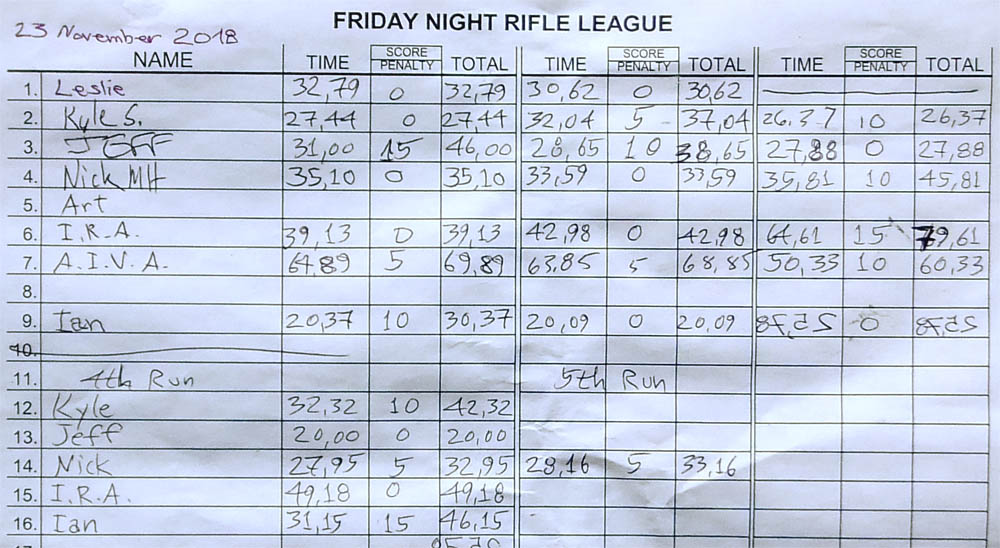 FRIDAY NIGHT RIFLE LEAGUE
23 November 2018
NAME TIME SCORE PENALTY TOTAL TIME SCORE PENALTY TOTAL TIME SCORE PENALTY TOTAL
1. Leslie 32,79 0 32,79 30,62 0 30,62
2. Kyle S. 27,44 0 27,44 32,04 5 37,04 26.37 10 26,37
3. JEFF 31,00 15 46,00 28,65 10 38,65 27,88 0 27,88
4. Nick MH 35,10 0 35,10 33,59 0 33,59 35,81 10 45,81
5. Art
6. I.R.A. 39,13 0 39,13 42,98 0 42,98 64,61 15 79,61
7. A.I.V.A. 64,89 5 69,89 63,85 5 68,85 50,33 10 60,33
8.
9. Ian 20,37 10 30,37 20,09 0 20,09 25,78 0 25,78
10.
11. 4th Run 5th Run
12. Kyle 32,32 10 42,32
13. Jeff 20,00 0 20,00
14. Nick 27,95 5 32,95 28,16 5 33,16
15. I.R.A. 49,18 0 49,18
16. Ian 31,15 15 46,15